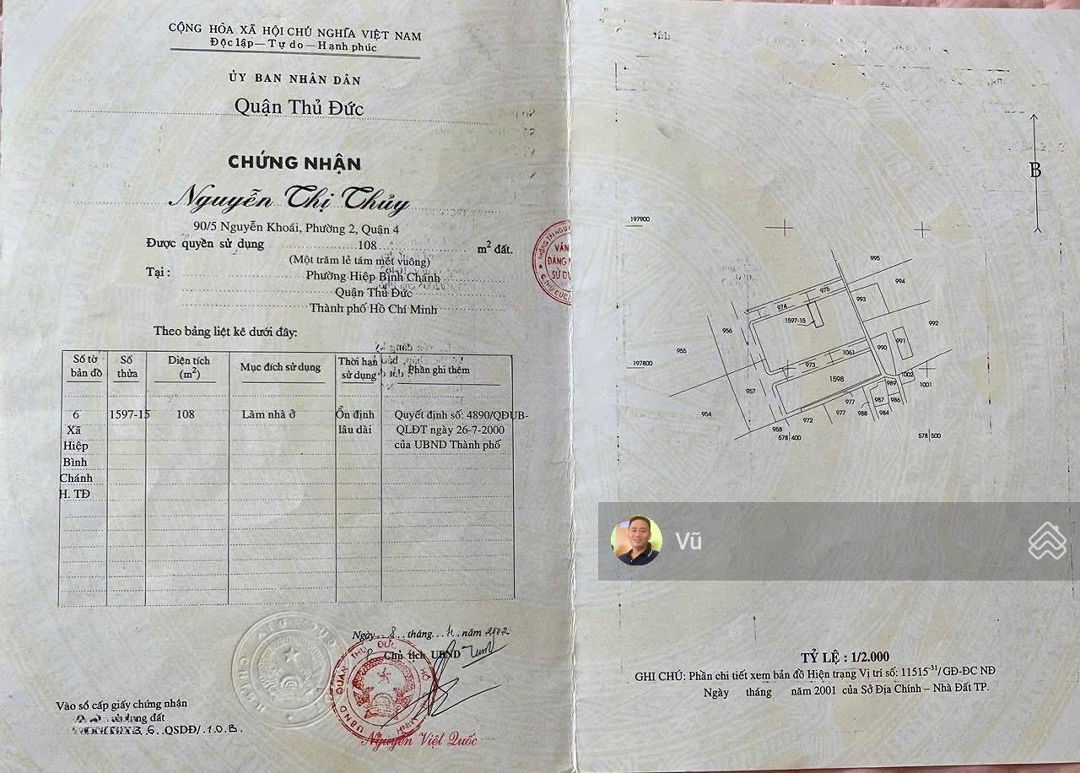 CỘNG HÒA XÃ HỘI CHỦ NGHĨA VIỆT NAM
Độc lập — Tự do — Hạnh phúc
ỦY BAN NHÂN DÂN
Quận Thủ Đức
CHỨNG NHẬN
Nguyễn Thị Thủy
90/5 Nguyễn Khoái, Phường 2, Quận 4
Được quyền sử dụng 108 m² đất.
(Một trăm lẻ tám mét vuông)
Tại : Phường Hiệp Bình Chánh
Quận Thủ Đức
Thành phố Hồ Chí Minh
Theo bảng liệt kê dưới đây:
Số tờ bản đồ Số thửa Diện tích (m²) Mục đích sử dụng Thời hạn sử dụng Phần ghi thêm
6 1597-15 108 Làm nhà ở Ổn định Quyết định số: 4890/QĐUB-
Xã lâu dài QLĐT ngày 26-7-2000
Hiệp của UBND Thành phố
Bình
Chánh
H. TĐ
Ngày 8 tháng năm 2002
Chủ tịch UBND
Nguyễn Việt Quốc
Vào sổ cấp giấy chứng nhận
QSDĐ/.1.0.8.
B
197900
995
994
975
974
993
1597-15
956
992
955
991
990
1061
197800
973
1598
1002
1001
989
957
987
986
977
954
972
977
988
984
958
578 400
578 500
Vũ
TỶ LỆ : 1/2.000
GHI CHÚ: Phần chi tiết xem bản đồ Hiện trạng Vị trí số: 11515-31/ GĐ-ĐC NĐ
Ngày tháng năm 2001 của Sở Địa Chính – Nhà Đất TP.